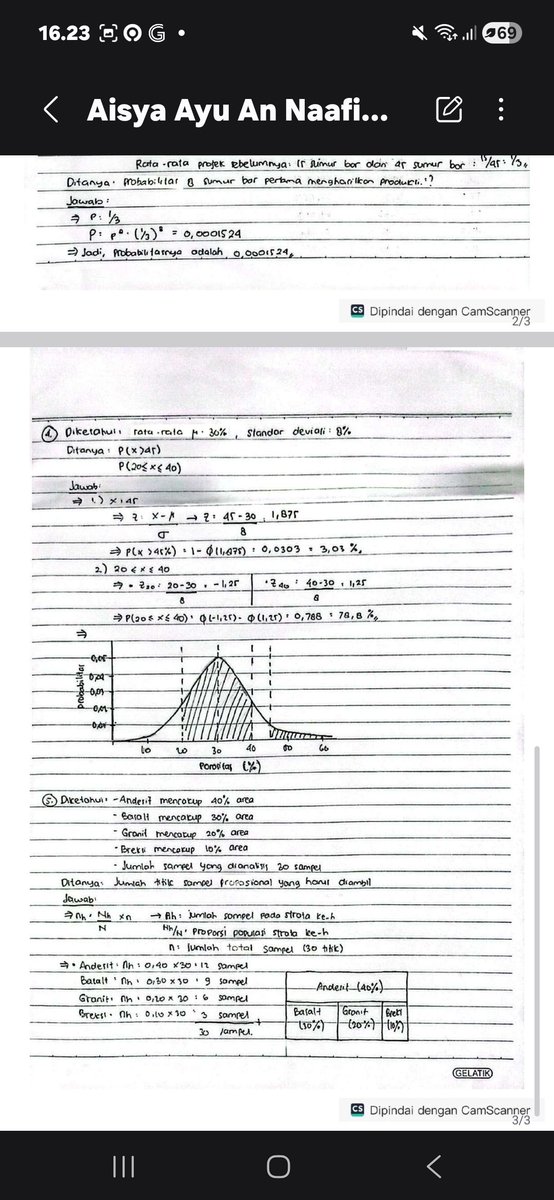 16.23
69
Aisya Ayu An Naafi...
Rata-rata projek sebelumnya: 15 sumur bor dari 45 sumur bor = 15/45 = 1/3
Ditanya: Probabilitas 8 sumur bor pertama menghasilkan produksi.?
Jawab:
⇒ P: 1/3
P: p⁸ = (1/3)⁸ = 0,0001524
⇒ Jadi, Probabilitasnya adalah 0,0001524
CS Dipindai dengan CamScanner
2/3
4. Diketahui: rata-rata μ: 30%, Standar deviasi: 8%
Ditanya: P(x>45)
P(20≤x≤40)
Jawab:
⇒ 1.) x>45
⇒ z: x-μ → z: 45-30 = 1,875
σ 8
⇒ P(x>45%) = 1-Φ(1,875) = 0,0303 = 3,03%
2.) 20≤x≤40
⇒ • z20: 20-30 = -1,25 • z40: 40-30 = 1,25
8 8
⇒ P(20≤x≤40) = Φ(-1,25) - Φ(1,25) = 0,788 = 78,8%
⇒
0,05
probabilitas
10 20 30 40 50 60
Porositas (%)
5. Diketahui: - Andesit mencakup 40% area
- Basalt mencakup 30% area
- Granit mencakup 20% area
- Breksi mencakup 10% area
- Jumlah sampel yang dianalisis 30 sampel
Ditanya: Jumlah titik sampel proposional yang harus diambil
Jawab:
⇒ nh = Nh xn → nh: jumlah sampel pada strata ke-h
N Nh/N: Proporsi populasi strata ke-h
n: Jumlah total sampel (30 titik)
⇒ • Andesit: nh: 0,40 x30 = 12 sampel
Basalt: nh: 0,30 x 30 = 9 sampel
Granit: nh: 0,20 x 30 = 6 sampel
Breksi: nh: 0,10 x 30 = 3 sampel +
30 sampel.
Andesit (40%)
Basalt (30%) Granit (20%) Breksi (10%)
GELATIK
CS Dipindai dengan CamScanner
3/3